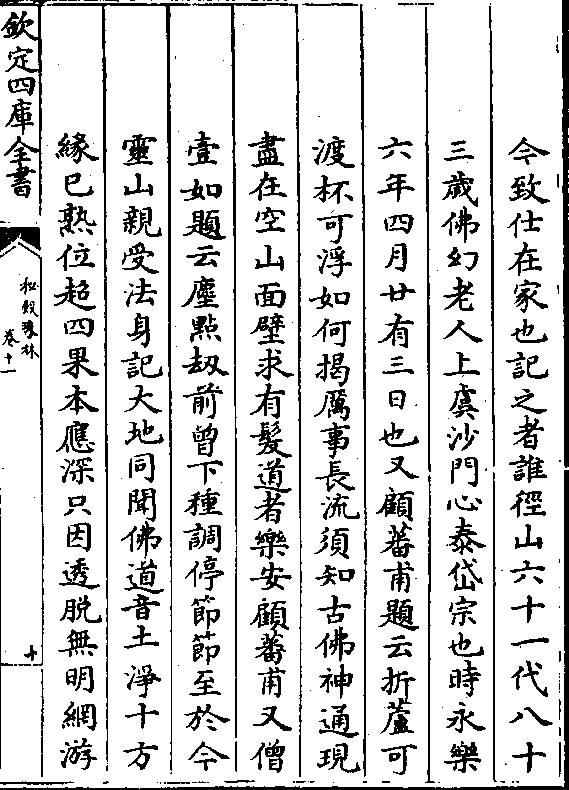 今致仕在家也記之者誰徑山六十一代八十
三歲佛幻老人上虞沙門心泰岱宗也時永樂
六年四月廿有三日也又顧蕃甫題云折蘆可
渡杯可浮如何揭厲事長流須知古佛神通現
盡在空山面壁求有髮道者樂安顧蕃甫又僧
壹如題云塵點劫前曾下種調停節節至於今
靈山親受法身記大地同聞佛道音土淨十方
緣已熟位超四果本應深只因透脫無明網游
欽定四庫全書
秘殿珠林
卷十一
十